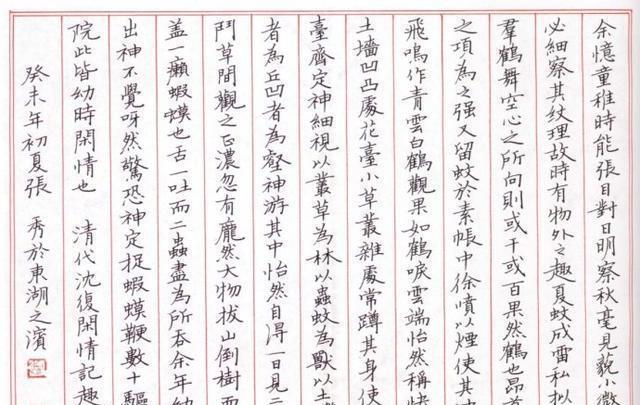 余憶童稚時能張目對日明察秋毫見藐小微
必細察其紋理故時有物外之趣夏蚊成雷私拟
羣鶴舞空心之所向則或千或百果然鶴也昂首
之項為之强又留蚊於素帳中徐噴以煙使其
飛鳴作青雲白鶴觀果如鶴唳雲端怡然稱快
土墻凹凸處花臺小草叢雜處常蹲其身使
臺齊定神細視以叢草為林以蟲蚊為獸以土
者為丘凹者為壑神游其中怡然自得一日見二
鬥草間觀之正濃忽有龐然大物拔山倒樹而
盖一癩蝦蟆也舌一吐而二蟲盡為所吞余年幼
出神不覺呀然驚恐神定捉蝦蟆鞭數十驅
院此皆幼時閑情也 清代沈復閑情記趣
癸未年初夏張 秀於東湖之濱